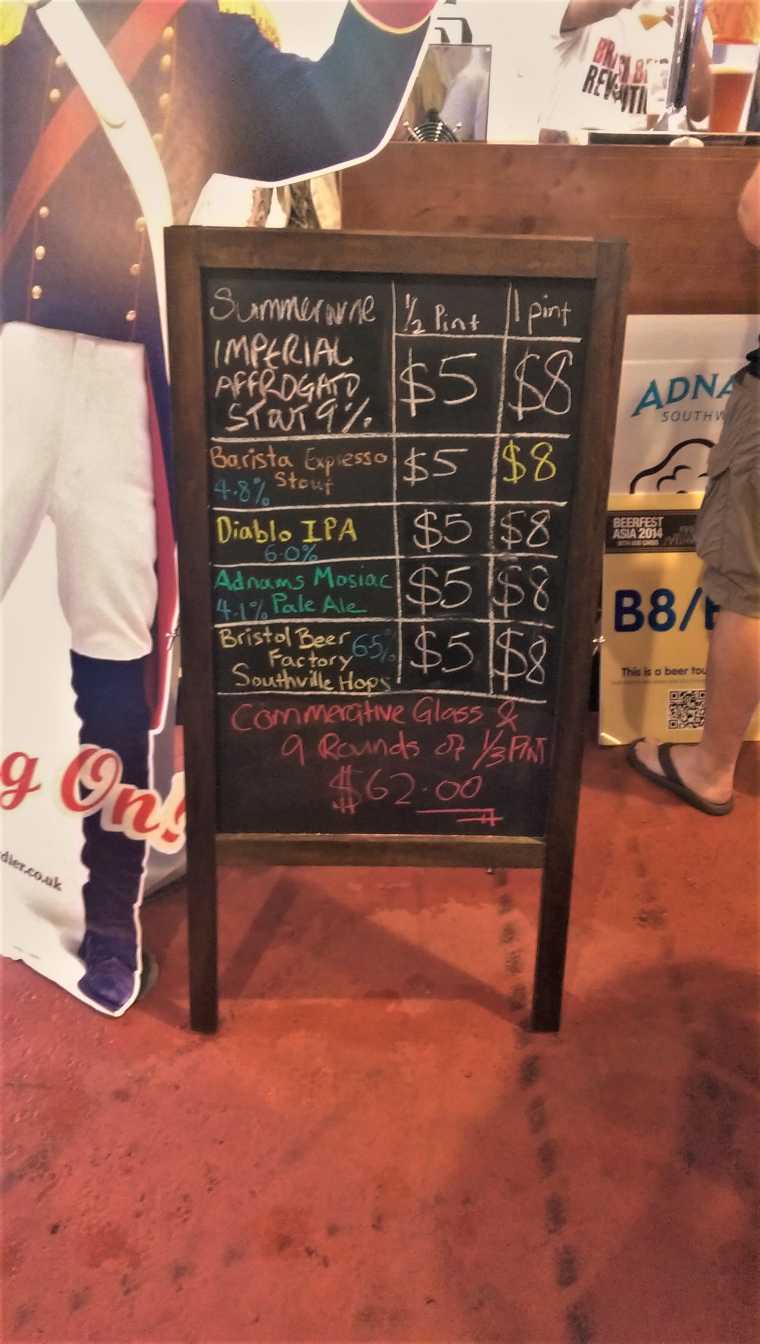 BR BE
REV UTI
Summerwine ½ Pint 1 pint
IMPERIAL
AFFROGATO
STOUT 9% $5 $8
Barista Expresso
4.8% Stout $5 $8
Diablo IPA
6.0% $5 $8
Adnams Mosiac
4.1% Pale Ale $5 $8
Bristol Beer 6.5%
Factory
Southville Hops $5 $8
Commercitive Glass &
9 Rounds of 1/3 PINT
$62.00
ADNA
SOUTHW
BEERFEST
ASIA 2014
B8/
This is a beer tou
g On!
dier.co.uk